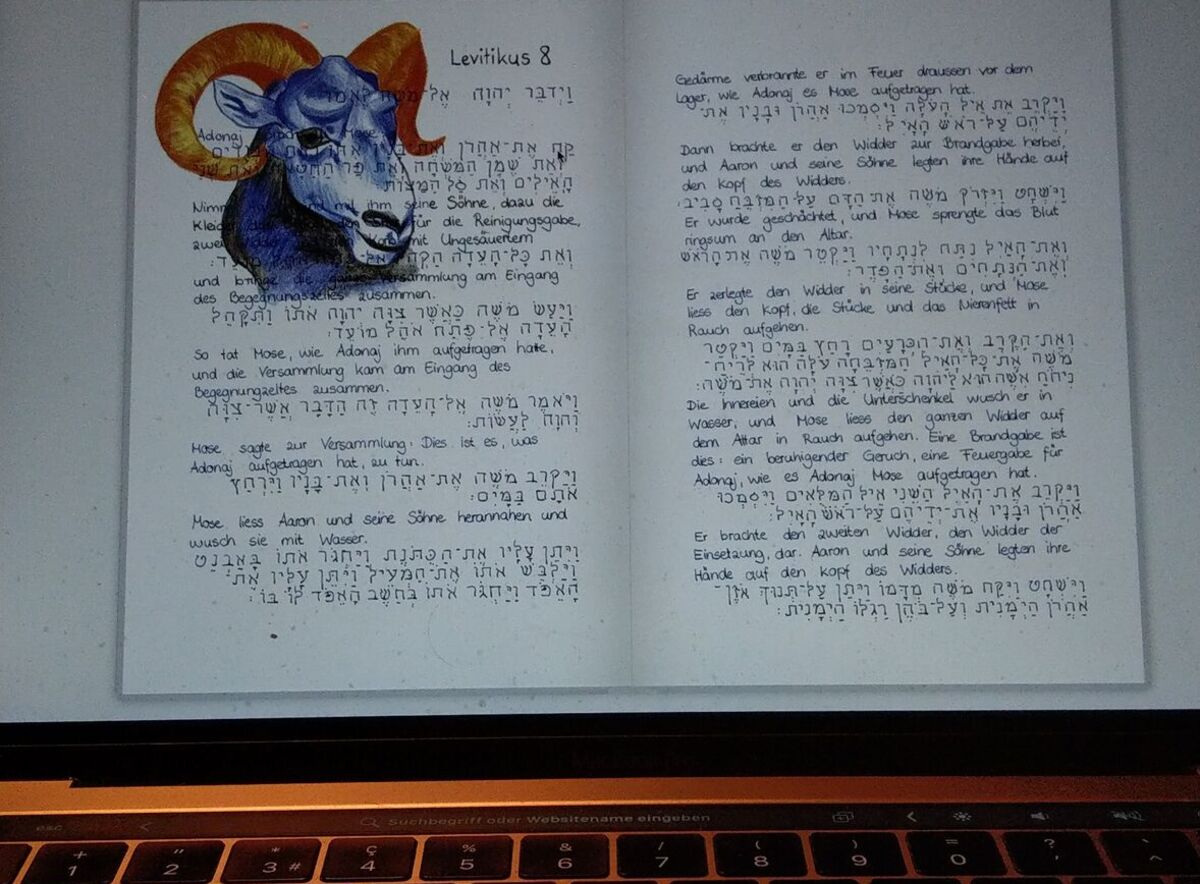 Levitikus 8
וַיְדַבֵּר יְהוָה אֶל־מֹשֶׁה לֵּאמֹר
Adonaj Mose
קַח אֶת־אַהֲרֹן וְאֶת־בָּנָיו אִתּוֹ
וְאֵת שֶׁמֶן הַמִּשְׁחָה וְאֵת פַּר הַחַטָּאת וְאֵת שְׁנֵי
הָאֵילִים וְאֵת סַל הַמַּצּוֹת
Nimm und mit ihm seine Söhne, dazu die
Kleider für die Reinigungsgabe,
zwei mit Ungesäuertem
וְאֵת כָּל־הָעֵדָה הַקְהֵל אֶל־
und bringe die ganze Versammlung am Eingang
des Begegnungszeltes zusammen.
וַיַּעַשׂ מֹשֶׁה כַּאֲשֶׁר צִוָּה יְהוָה אֹתוֹ וַתִּקָּהֵל
הָעֵדָה אֶל־פֶּתַח אֹהֶל מוֹעֵד׃
So tat Mose, wie Adonaj ihm aufgetragen hatte,
und die Versammlung kam am Eingang des
Begegnungzeltes zusammen.
וַיֹּאמֶר מֹשֶׁה אֶל־הָעֵדָה זֶה הַדָּבָר אֲשֶׁר־צִוָּה
יְהוָה לַעֲשׂוֹת׃
Mose sagte zur Versammlung: Dies ist es, was
Adonaj aufgetragen hat, zu tun.
וַיַּקְרֵב מֹשֶׁה אֶת־אַהֲרֹן וְאֶת־בָּנָיו וַיִּרְחַץ
אֹתָם בַּמָּיִם׃
Mose liess Aaron und seine Söhne herannahen und
wusch sie mit Wasser.
וַיִּתֵּן עָלָיו אֶת־הַכֻּתֹּנֶת וַיַּחְגֹּר אֹתוֹ בָּאַבְנֵט
וַיַּלְבֵּשׁ אֹתוֹ אֶת־הַמְּעִיל וַיִּתֵּן עָלָיו אֶת־
הָאֵפֹד וַיַּחְגֹּר אֹתוֹ בְּחֵשֶׁב הָאֵפֹד לוֹ בּוֹ׃
Gedärme verbrannte er im Feuer draussen vor dem
Lager, wie Adonaj es Mose aufgetragen hat.
וַיַּקְרֵב אֵת אֵיל הָעֹלָה וַיִּסְמְכוּ אַהֲרֹן וּבָנָיו אֶת־
יְדֵיהֶם עַל־רֹאשׁ הָאָיִל׃
Dann brachte er den Widder zur Brandgabe herbei,
und Aaron und seine Söhne legten ihre Hände auf
den Kopf des Widders.
וַיִּשְׁחָט וַיִּזְרֹק מֹשֶׁה אֶת־הַדָּם עַל־הַמִּזְבֵּחַ סָבִיב׃
Er wurde geschächtet, und Mose sprengte das Blut
ringsum an den Altar.
וְאֶת־הָאַיִל נִתַּח לִנְתָחָיו וַיַּקְטֵר מֹשֶׁה אֶת־הָרֹאשׁ
וְאֶת־הַנְּתָחִים וְאֶת־הַפָּדֶר׃
Er zerlegte den Widder in seine Stücke, und Mose
liess den Kopf, die Stücke und das Nierenfett in
Rauch aufgehen.
וְאֶת־הַקֶּרֶב וְאֶת־הַכְּרָעַיִם רָחַץ בַּמָּיִם וַיַּקְטֵר
מֹשֶׁה אֶת־כָּל־הָאַיִל הַמִּזְבֵּחָה עֹלָה הוּא לְרֵיחַ־
נִיחֹחַ אִשֶּׁה הוּא לַיהוָה כַּאֲשֶׁר צִוָּה יְהוָה אֶת־מֹשֶׁה׃
Die Innereien und die Unterschenkel wusch er in
Wasser, und Mose liess den ganzen Widder auf
dem Altar in Rauch aufgehen. Eine Brandgabe ist
dies: ein beruhigender Geruch, eine Feuergabe für
Adonaj, wie es Adonaj Mose aufgetragen hat.
וַיַּקְרֵב אֶת־הָאַיִל הַשֵּׁנִי אֵיל הַמִּלֻּאִים וַיִּסְמְכוּ
אַהֲרֹן וּבָנָיו אֶת־יְדֵיהֶם עַל־רֹאשׁ הָאָיִל׃
Er brachte den zweiten Widder, den Widder der
Einsetzung, dar. Aaron und seine Söhne legten ihre
Hände auf den Kopf des Widders.
וַיִּשְׁחָט וַיִּקַּח מֹשֶׁה מִדָּמוֹ וַיִּתֵּן עַל־תְּנוּךְ אֹזֶן־
אַהֲרֹן הַיְמָנִית וְעַל־בֹּהֶן רַגְלוֹ הַיְמָנִית׃
esc
Suchbegriff oder Websitename eingeben
+ " * ç % & / ( ) = ? `
1 2 3 # 4 5 6 7 8 9 0 ' ^